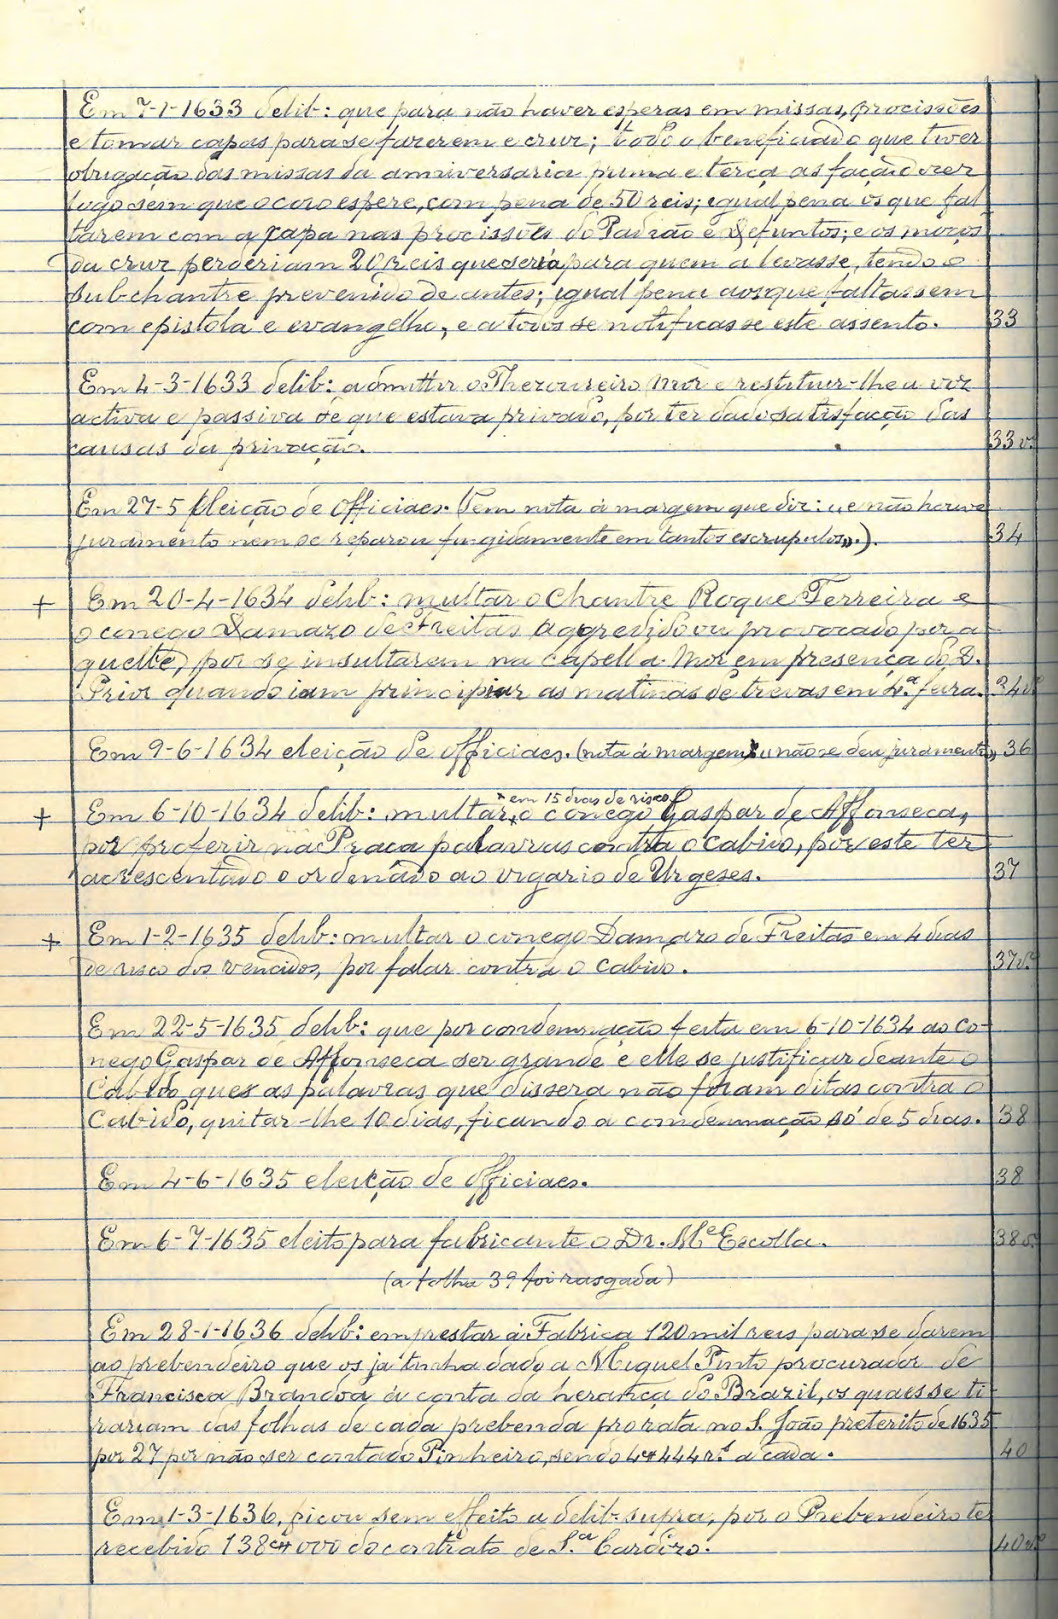 Em 7-1-1633 delib: que para não haver esperas em missas, procissões
e tomar capas para se fazerem e cruz; todo o beneficiado que tiver
obrigação das missas da anniversaria prima e terça as façam dizer
logo sem que o coro espere, com pena de 50 reis; egual pena os que fal
tarem com a capa nas procissões do Padrão e Defuntos; e os moços
da cruz perderiam 20 reis que seria para quem a levasse, tendo o
subchantre prevenido de antes; igual pena aos que faltassem
com epistola e evangelho, e a todos se notificasse este assento. 33
Em 4-3-1633 delib: admittir o Thezoureiro Mór e restituir-lhe a voz
activa e passiva de que estava privado, por ter dado satisfacção das
causas da privação. 33 v.
Em 27-5 Eleição de Officiaes. (Tem nota á margem que diz: «e não houve
juramento nem se reparou fingidamente em tantos escrupulos».) 34
+ Em 20-4-1634 delib: multar o Chantre Roque Ferreira e
o conego Damazo de Freitas aggredido ou provocado por a-
quelle, por se insultarem na capella-Mór em presença do D.
Prior quando iam principiar as matinas de trevas em 4.ª feira. 34 v.º
Em 9-6-1634 eleição de officiaes. (nota á margem: «não se deu juramento») 36
+ Em 6-10-1634 delib: multar, × em 15 dias de risco o conego Gaspar de Affonseca,
por proferir na Praça palavras contra o Cabido, por este ter
acrescentado o ordenado ao vigario de Urgeses. 37
+ Em 1-2-1635 delib: multar o conego Damazo de Freitas em 4 dias
de risco dos vencidos, por falar contra o Cabido. 37 v.º
Em 22-5-1635 delib: que por condemnação feita em 6-10-1634 ao co-
nego Gaspar de Affonseca ser grande e elle se justificar deante o
Cabido que as palavras que dissera não foram ditas contra o
Cabido, quitar-lhe 10 dias, ficando a condemnação só de 5 dias. 38
Em 4-6-1635 eleição de officiaes. 38
Em 6-7-1635 eleito para fabricante o Dr. M.e Escolla. 38 v.
(a folha 39 foi rasgada)
Em 28-1-1636 delib: emprestar á Fabrica 120 mil reis para se darem
ao prebendeiro que os já tinha dado a Miguel Pinto procurador de
Francisca Brandôa á conta da herança do Brazil, os quaes se ti-
rariam das folhas de cada prebenda pro rata no S. João preterito de 1635
por 27 por não ser contado Pinheiro, sendo 4$444 r.s a cada. 40
Em 1-3-1636, ficou sem effeito a delib. supra, por o Prebendeiro ter
recebido 138$000 do contrato de S.ta Cardizo. 40 v.º